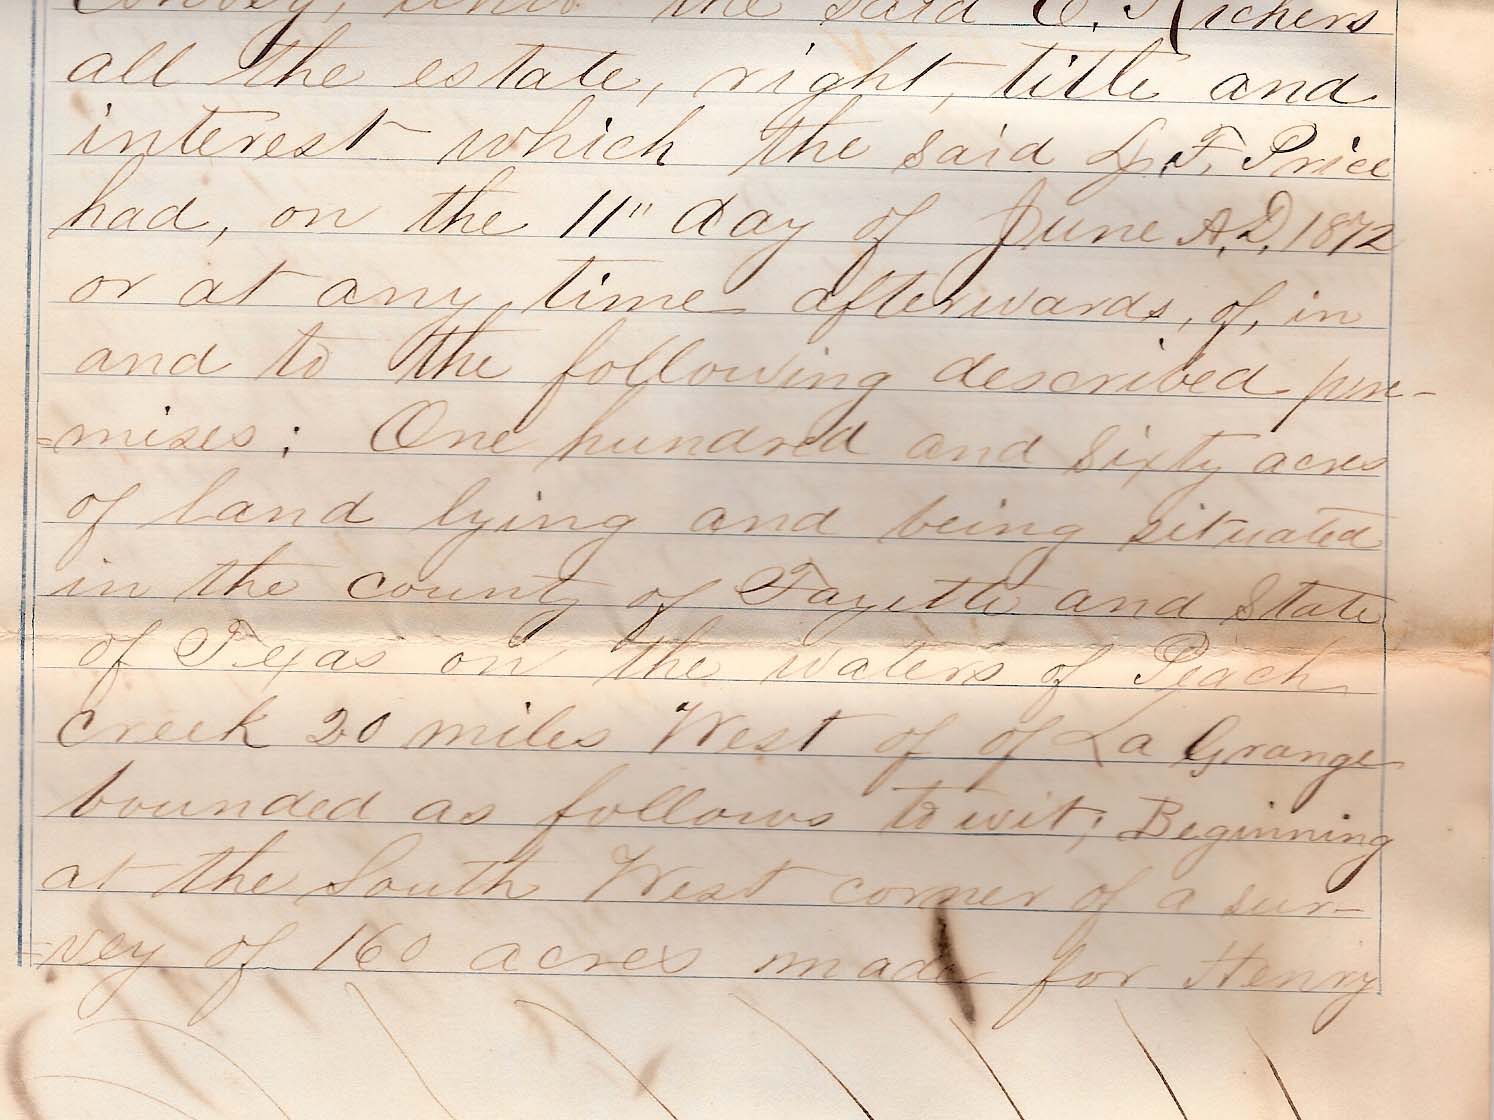 convey, unto the said C. Richers
all the estate, right, title and
interest which the said L. F. Price
had, on the 11" day of June A.D. 1872
or at any time afterwards, of, in
and to the following described pre-
=mises: One hundred and sixty acres
of land lying and being situated
in the county of Fayette and State
of Texas on the waters of Peach
creek 20 miles West of of La Grange
bounded as follows to wit; Beginning
at the South West corner of a sur-
=vey of 160 acres made for Henry